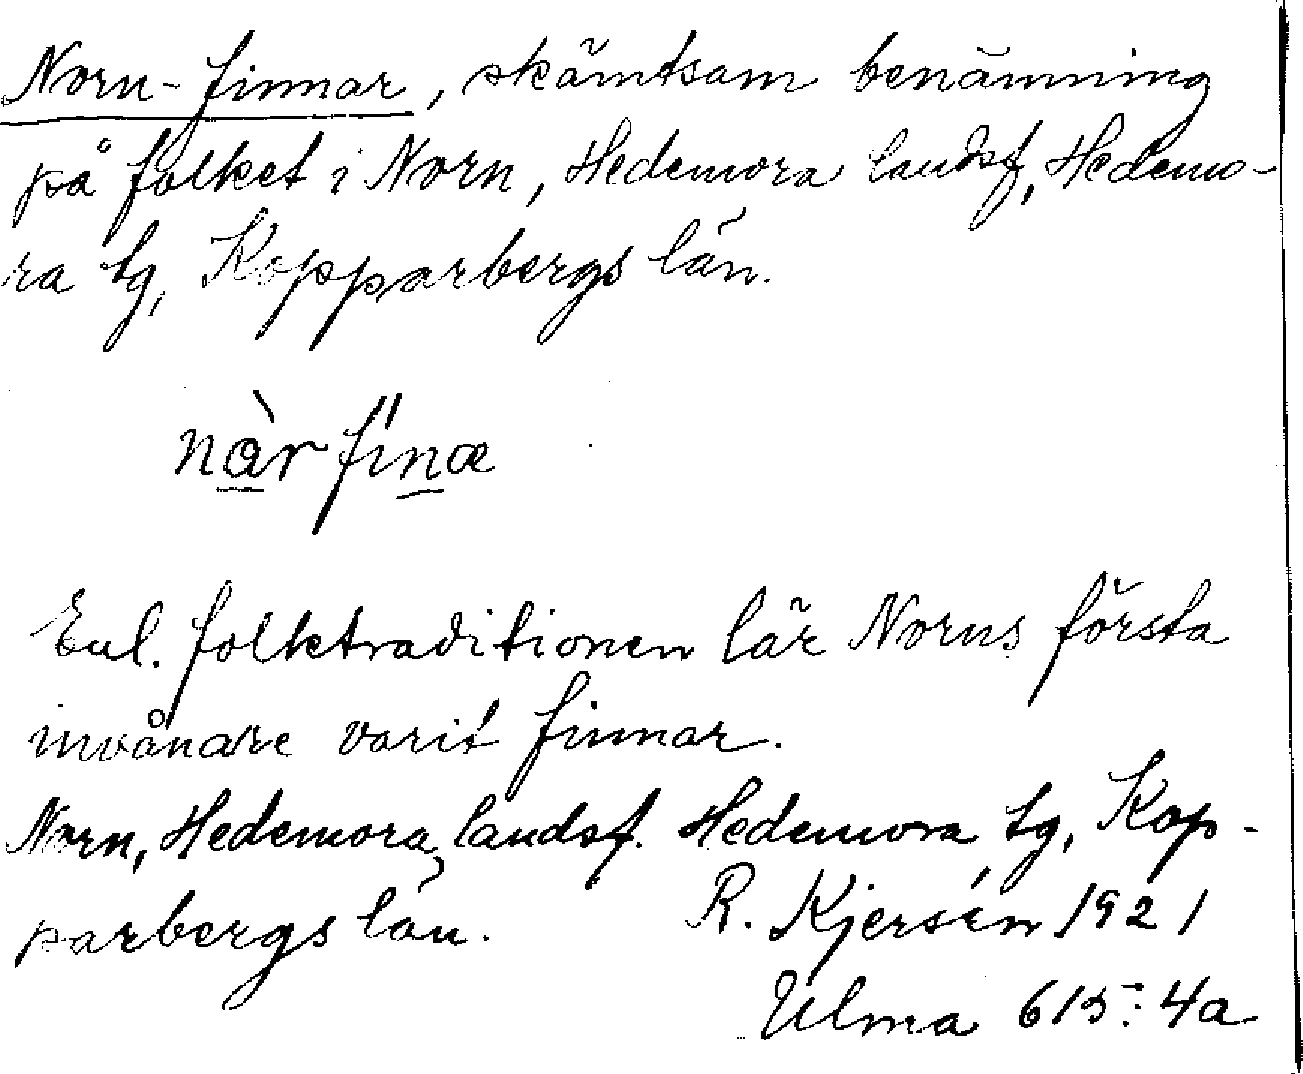 Norn-finnar, skämtsam benämning
på folket i Norn, Hedemora landsf, Hedemo-
ra tg, Kopparbergs län.
nàrfinæ
Enl. folktraditionen lär Norns första
invånare varit finnar.
Norn, Hedemora landsf. Hedemora tg, Kop-
parbergs län. R. Kjersén 1921
Ulma 615:4a